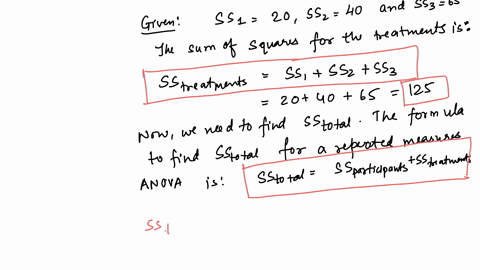 Given: SS1 = 20, SS2 = 40 and SS3 = 65
The sum of squares for the treatments is:
SStreatments = SS1 + SS2 + SS3
= 20 + 40 + 65 = 125
Now, we need to find SStotal. The formula
to find SStotal for a repeated measures
ANOVA is: SStotal = SSparticipants + SStreatments
SS